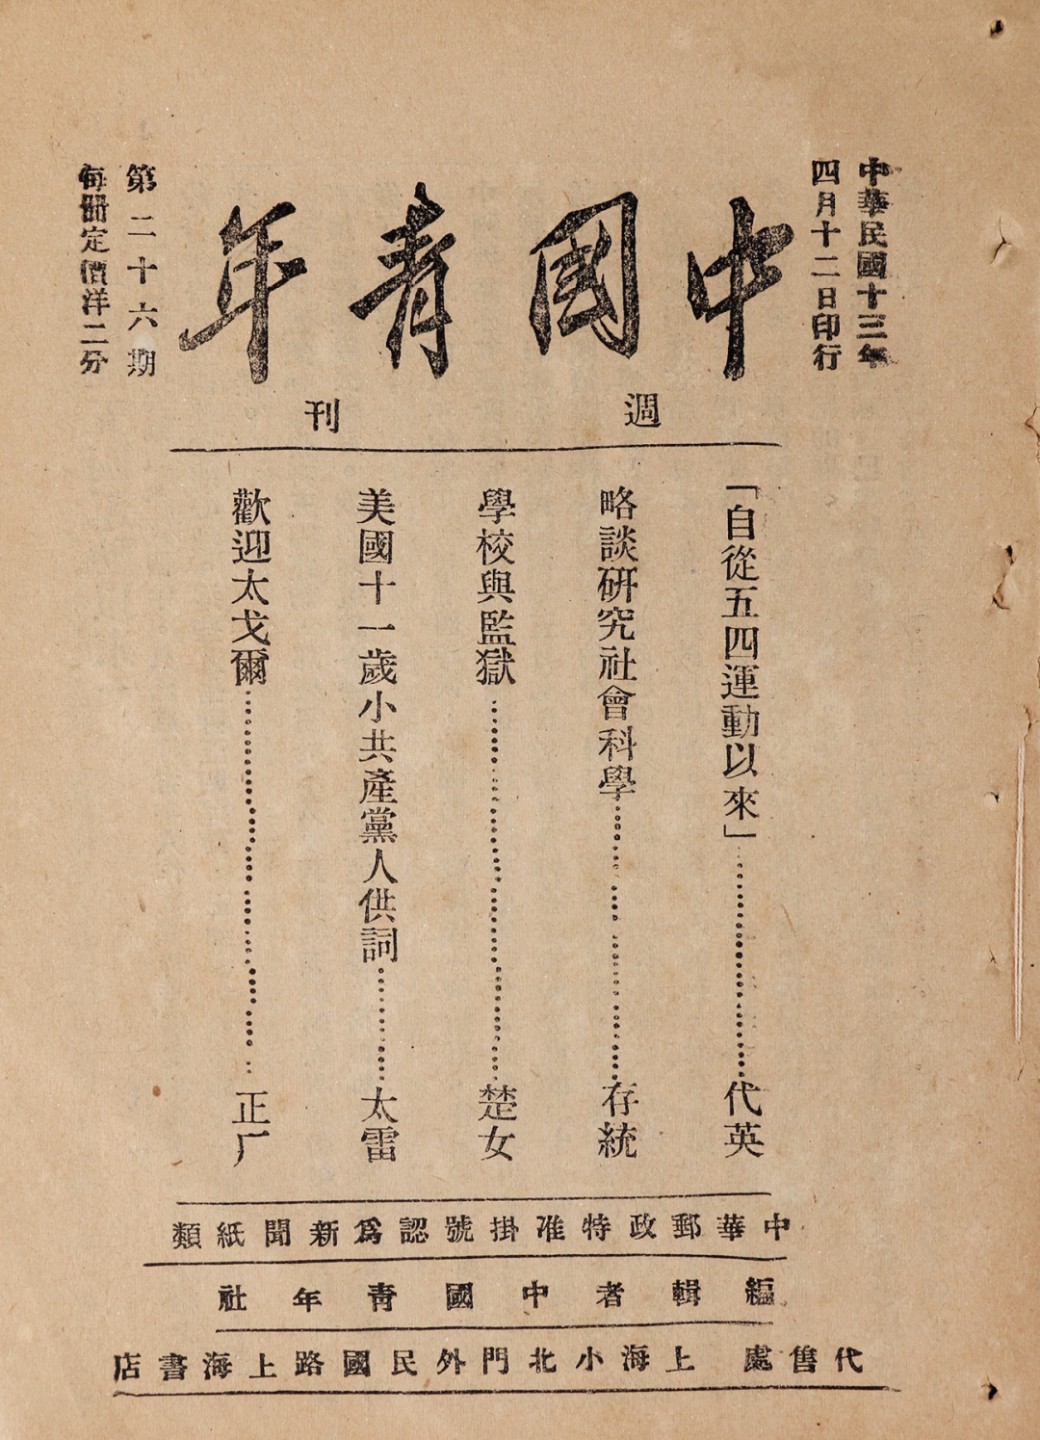 中華民國十三年
四月十二日印行
中國青年
週刊
第二十六期
每冊定價洋二分
「自從五四運動以來」……代英
略談研究社會科學……存統
學校與監獄……楚女
美國十一歲小共產黨人供詞……太雷
歡迎太戈爾……正厂
中華郵政特准掛號認爲新聞紙類
編輯者中國青年社
代售處 上海小北門外民國路上海書店